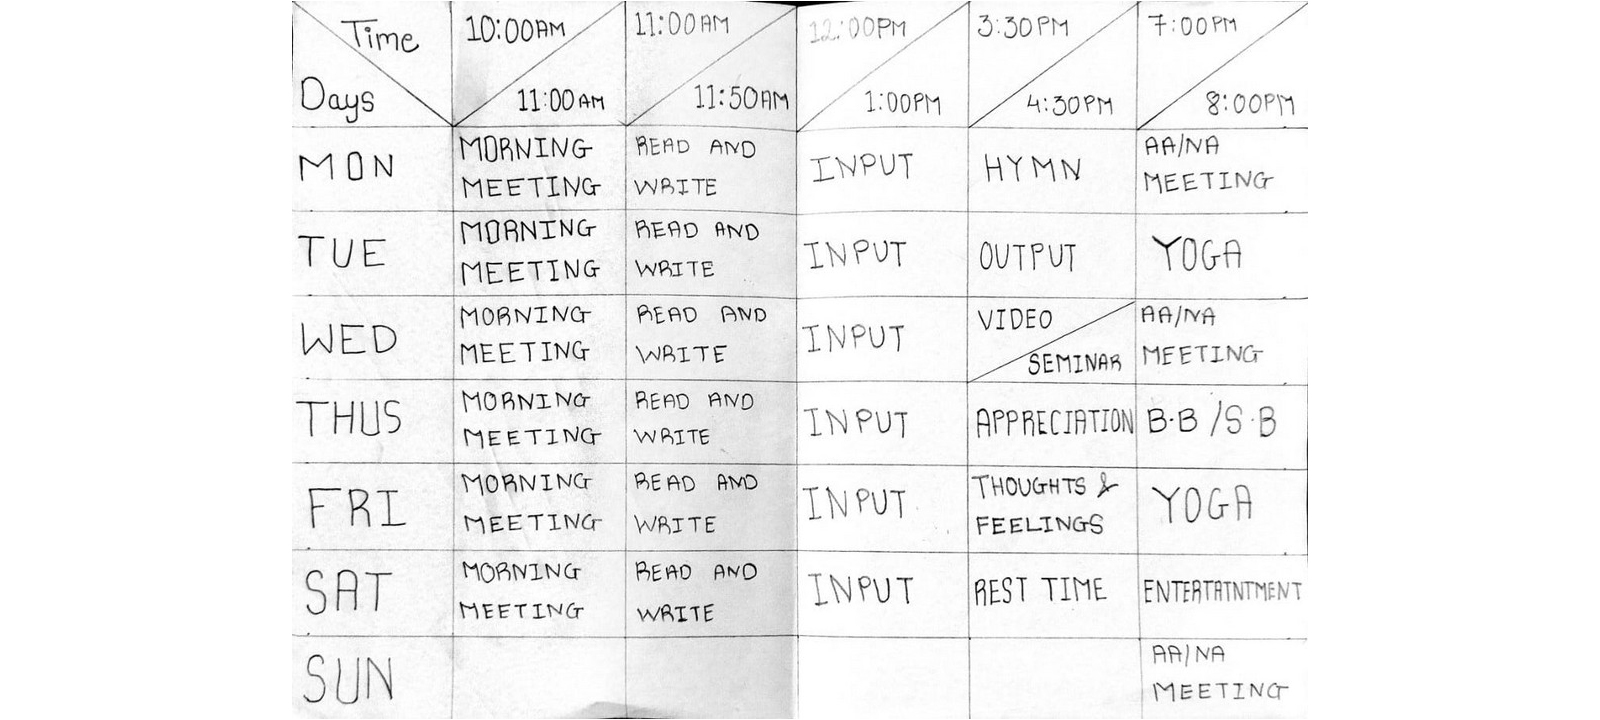 Time
Days
10:00AM
11:00AM
11:00AM
11:50AM
12:00PM
1:00PM
3:30PM
4:30PM
7:00PM
8:00PM
MON
MORNING
MEETING
READ AND
WRITE
INPUT
HYMN
AA/NA
MEETING
TUE
MORNING
MEETING
READ AND
WRITE
INPUT
OUTPUT
YOGA
WED
MORNING
MEETING
READ AND
WRITE
INPUT
VIDEO
SEMINAR
AA/NA
MEETING
THUS
MORNING
MEETING
READ AND
WRITE
INPUT
APPRECIATION
B.B/S.B
FRI
MORNING
MEETING
READ AND
WRITE
INPUT
THOUGHTS &
FEELINGS
YOGA
SAT
MORNING
MEETING
READ AND
WRITE
INPUT
REST TIME
ENTERTAINTMENT
SUN
AA/NA
MEETING